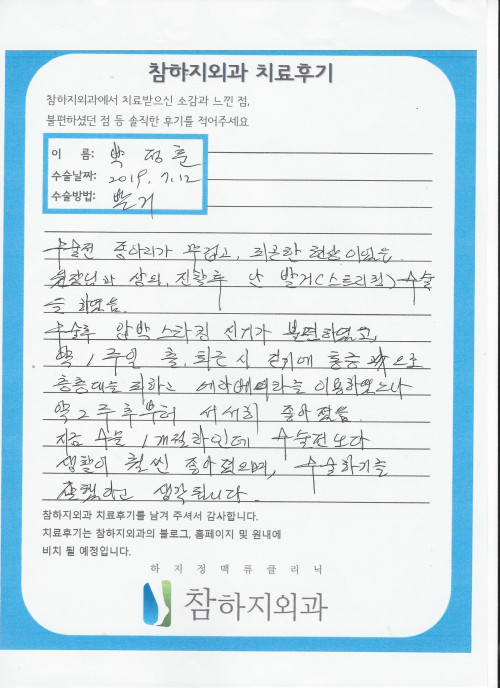 참하지외과 치료후기
참하지외과에서 치료받으신 소감과 느낀 점,
불편하셨던 점 등 솔직한 후기를 적어주세요
이 름: 박 정 훈
수술날짜: 2019. 7. 12
수술방법: 발거
수술전 종아리가 무겁고, 피곤한 현상이 있음.
원장님과 상의, 진찰후 난 발거(스트리핑) 수술
을 하였음.
수술후 압박 스타킹 신기가 불편하였고,
약 1주일 출.퇴근시 걷기에 통증 으로
층층대를 피하고 에라베이타를 이용하였으나
약 2주 후부터 서서히 좋아졌음.
지금 수술 1개월차인데 수술전보다
생활이 훨씬 좋아졌으며, 수술하기를
잘했다고 생각됩니다.
참하지외과 치료후기를 남겨 주셔서 감사합니다.
치료후기는 참하지외과의 블로그, 홈페이지 및 원내에
비치 될 예정입니다.
하지정맥류클리닉
참하지외과